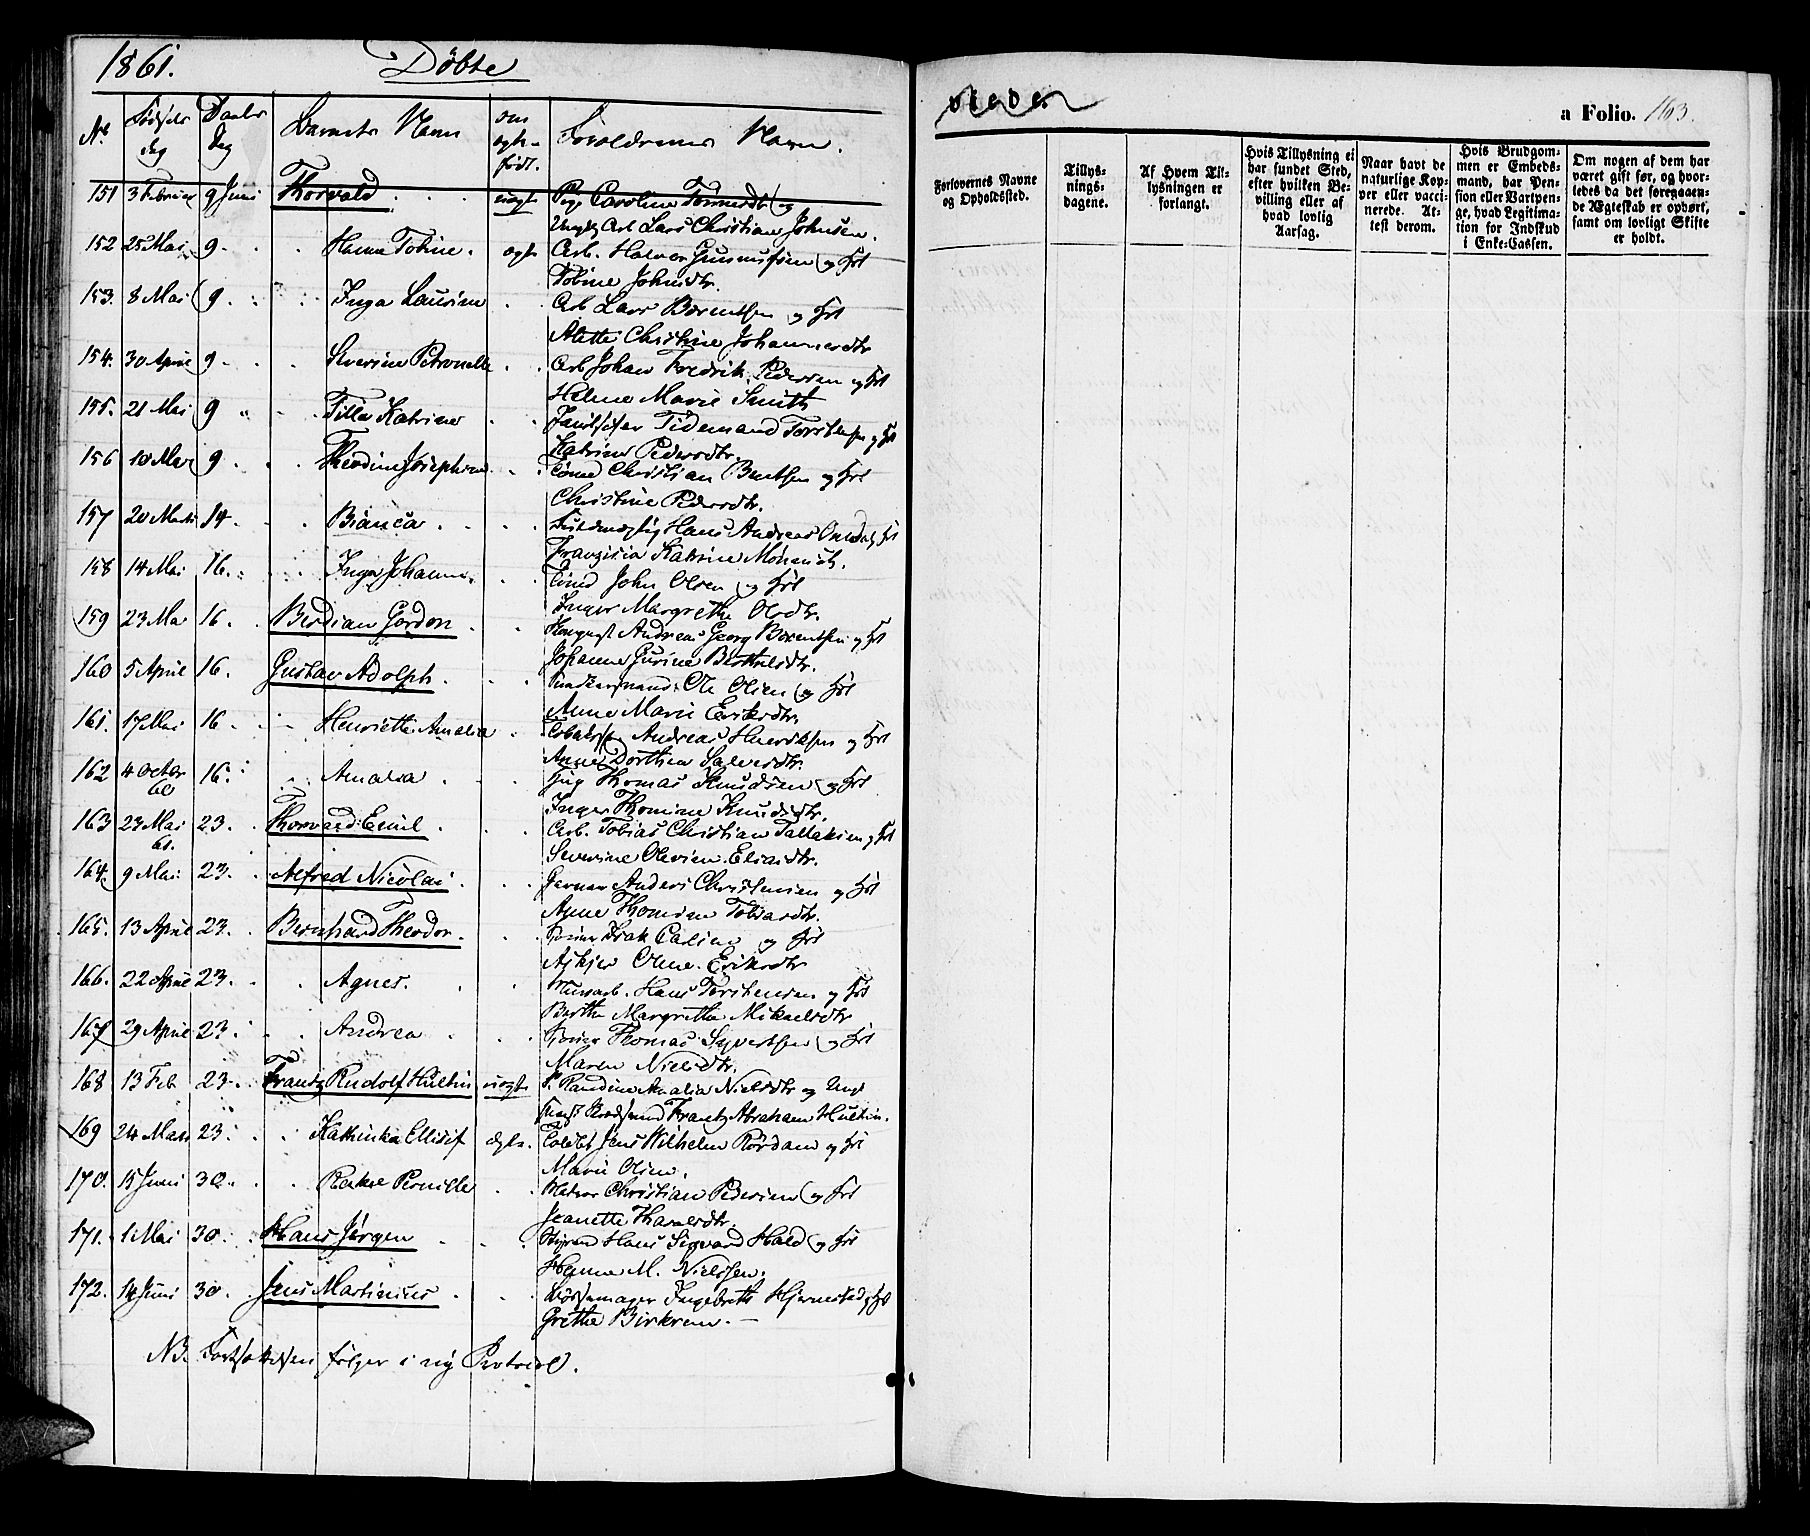 1861. Döbte
No. Fødsels dag Daabs Dag Barnets Navn om ægte født. Forældrenes Navn.
151 3 Februar 9 Juni Thorvald uægt Pige Caroline og
Ungk Arb Lars Christian Johnsen.
152 25 Mai 9 Hanna Tobine. ægt Arb. Halvor Gunnufsen og Hst
Tobine Johnsdtr.
153. 8 Mai 9 Inga Laurine Arb Lars Berentsen og Hst
Alette Christine Johannesdtr
154. 30 April 9 Severine Petronelle Arb Johan Fredrik Pedersen og Hst
Helene Marie Smith
155. 21 Mai 9 Tilla Katrine Tidemand Torstensen og Hst
Katrine Pedersdtr.
156 10 Mai 9 Theodine Josephine Tømd Christian Bentsen og Hst
Christine Pedersdtr.
157 20 Marts 14 Bianca Fuldmægtig Hans Andreas Omdal og Hst
Franzisia Katrine Mönnich.
158 14 Mai 16. Inga Johanne. Tømd John Olsen og Hst
Inger Margrethe Olsdtr.
159 23 Mai 16. Berdian Gordon Andreas Georg Berentsen og Hst
Johanne Gurine Berthelsdtr.
160 5 April 16. Gustav Adolph. Ole Olsen og Hst
Anne Marie Eriksdtr.
161. 17 Mai 16. Henriette Amalia Andreas Henriksen og Hst
Anne Dorthea Salvesdtr.
162 4 Octbr 60 16. Amalia Thomas Knudsen og Hst
Inger Thomine Knudsdtr.
163 23 Mai 61. 23. Thorvard Emil. Arb. Tobias Christian Tallaksen og Hst
Severine Olevine Eliasdtr.
164. 9 Mai 23. Alfred Nicolai. Garver Anders Christensen og Hst
Anne Thomine Tobiasdtr.
165. 13 April 23. Bernhard Theodor. Isak Carlsen og Hst
Oline Eriksdtr
166. 22 April 23. Agnes. Hans Torstensen og Hst
Berthe Margrethe Mikaelsdtr
167 29 April 23. Andrea Thomas Syvertsen og Hst
Maren Nielsdtr.
168 13 Feb 23. Frantz Rudolf Hultin uægt P. Randine Amalia Nielsdtr og Ungk
Svensk Frantz Abraham Hultin.
169 24 Marts 23. Kathinka Ellisif ægte. Toldbtj Jens Wilhelm Rördam og Hst
Marie Olsen.
170. 15 Juni 30. Rakel Pernille Matros Christian Pedersen og Hst
Jeanette Haraldsdtr.
171. 1 Mai 30. Hans Jörgen Styrmd Hans Sigvard Hald og Hst
Hanne M. Nielssen.
172. 14 Juni 30. Jens Martinius Ingebreth Hjernestad og Hst
Grethe Birkrem. —
NB. Fortsættelsen følger i ny Protocol.
viede.
a Folio. 163.
Forlovernes Navne og Opholdssted.
Tillys-
nings-
dagene.
Af Hvem Til-
lysningen er
forlangt.
Hvis Tillysning ei
har fundet Sted,
efter hvilken Be-
villing eller af
hvad lovlig
Aarsag.
Naar havt de
naturlige Kop-
per eller vacci-
nerede. At-
test derom.
Hvis Brudgom-
men er Embeds-
mand, har Pen-
sion eller Vartpen-
ge, hvad Legitima-
tion for Indskud
i Enke-Cassen.
Om nogen af dem har
været gift før, og hvor-
ledes da det foregaaen-
de Ægteskab er ophørt,
samt om lovligt Skifte
er holdt.